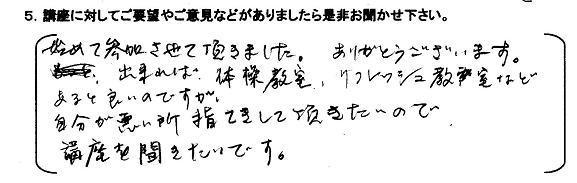 5. 講座に対してご要望やご意見などがありましたら是非お聞かせ下さい。
始めて参加させて頂きました。 ありがとうございます。
出来れば 体操教室、リフレッシュ教室など
あると良いのですが、
自分が悪い所 指てきして頂きたいので
講座を聞きたいです。